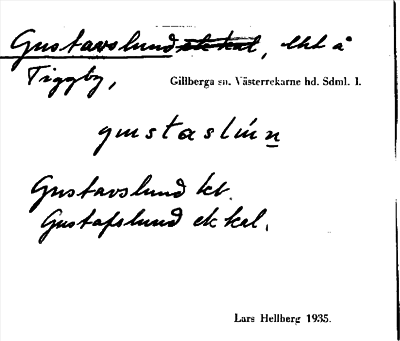 Gustavslund ek kal, lht å
Tiggby,
Gillberga sn. Västerrekarne hd. Sdml. l.
gustaslún
Gustavslund kt.
Gustafslund ek kal.
Lars Hellberg 1935.